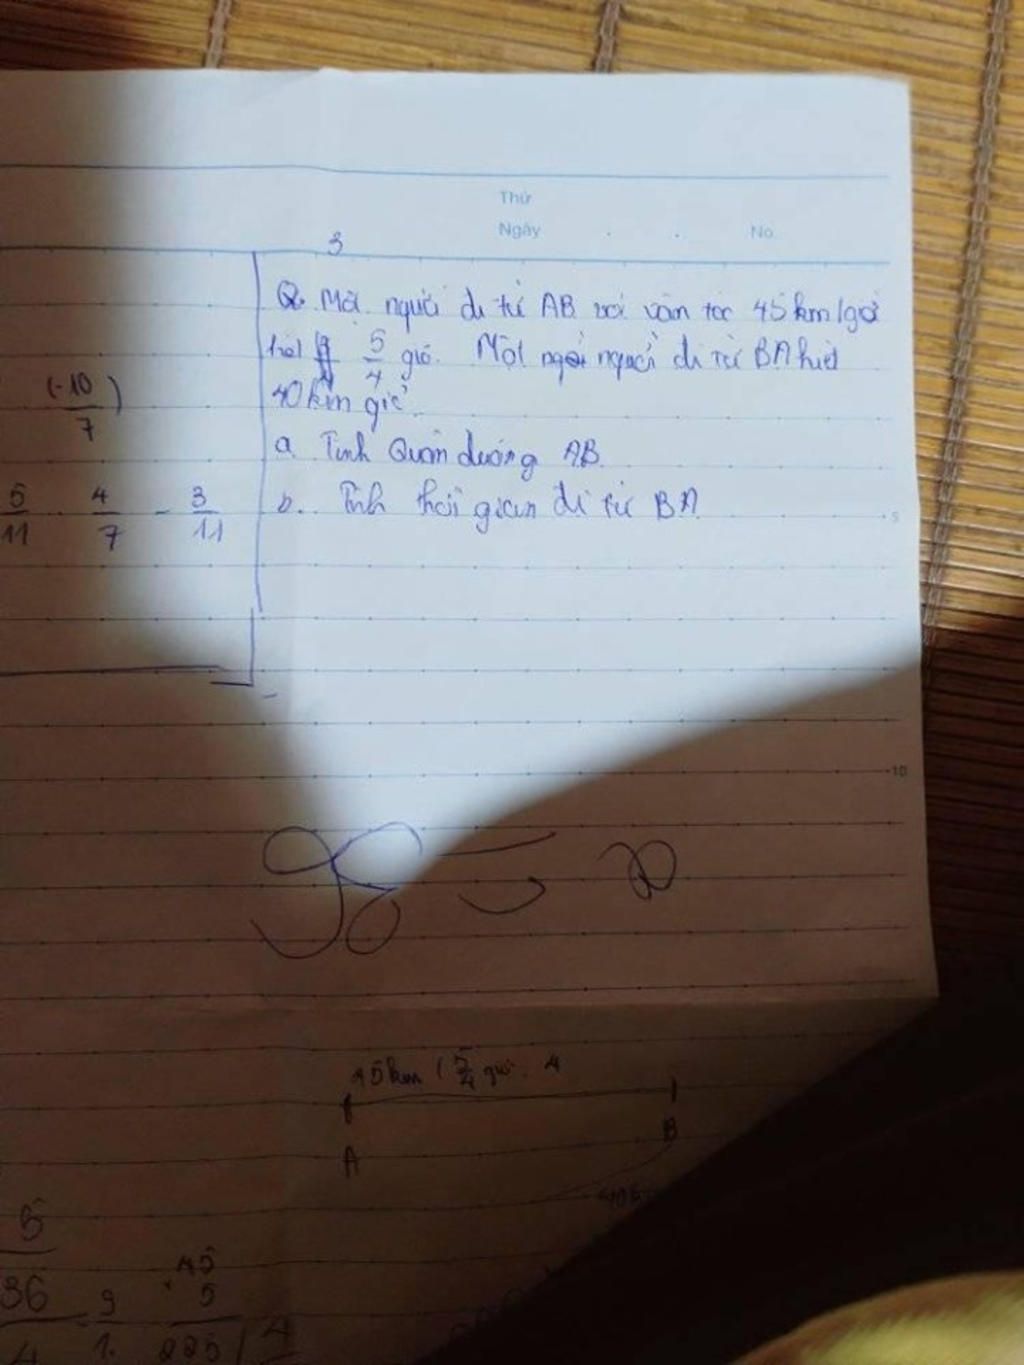 Thứ
Ngày . . No.
3
2. Một người đi từ AB với vân tốc 45km/giờ
hết 5/4 giờ. Một người đi từ BA hết
40km giờ.
a. Tính Quãn đường AB.
b.. Tính thời gian đi từ BA
(-10/7)
5/11 . 4/7 - 3/11
5
10
45km ( 5/4 giờ. 4
A
B
5
36
4
9
1.
45
5
225
4